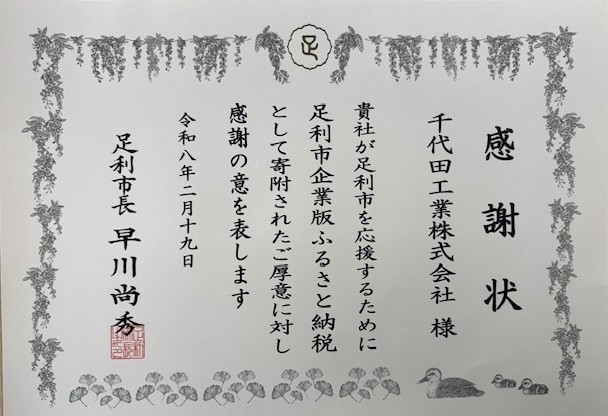 足
感謝状
千代田工業株式会社 様
貴社が足利市を応援するために
足利市企業版ふるさと納税
として寄附されたご厚意に対し
感謝の意を表します
令和八年二月十九日
足利市長 早川尚秀